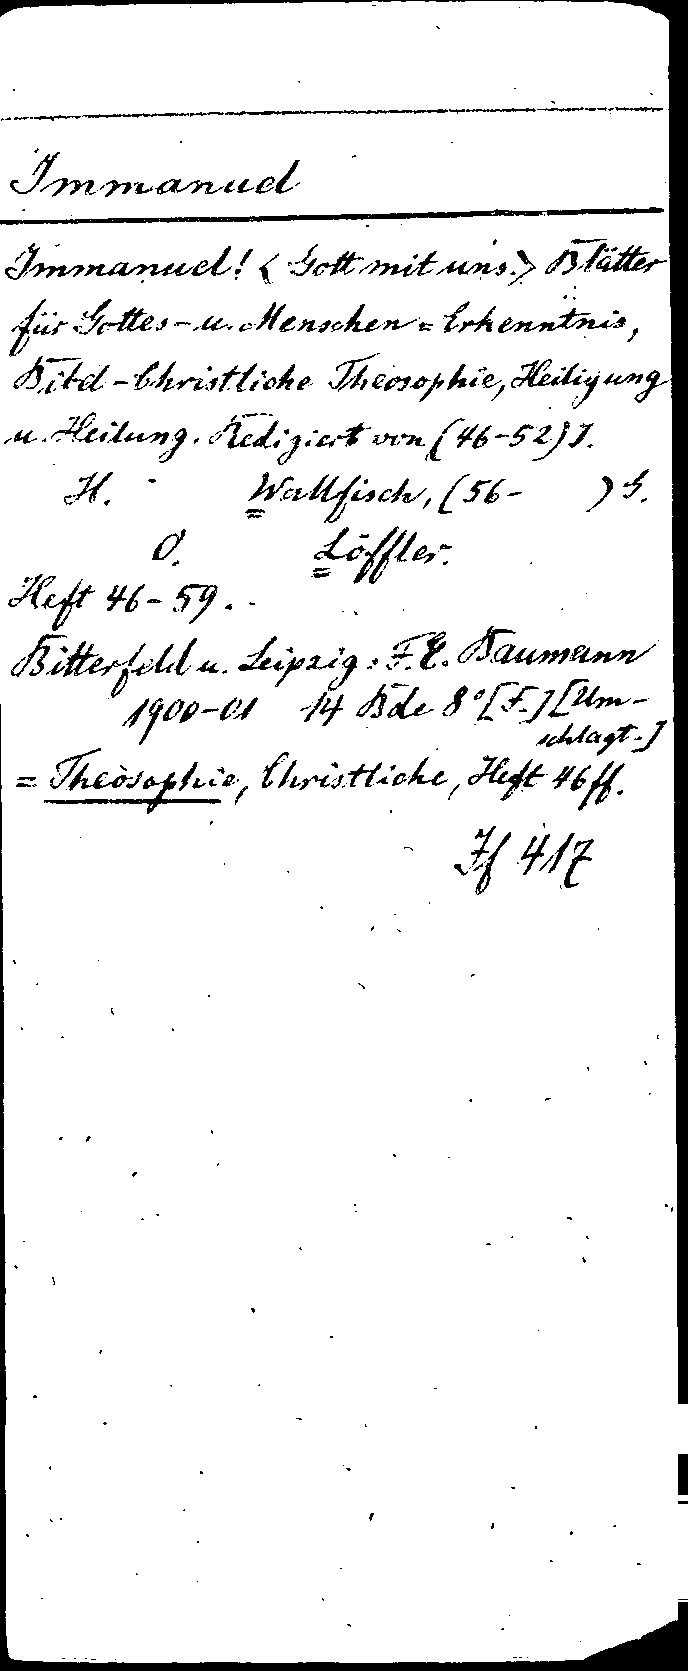 Immanuel
Immanuel! < Gott mit uns.> Blätter
für Gottes- u. Menschen=Erkenntnis,
Bibel-Christliche Theosophie, Heiligung
u. Heilung. Redigiert von (46-52) J.
H. Wallfisch, (56- ) G.
O. Löffler.
Heft 46-59.
Bitterfeld u. Leipzig: F. E. Baumann
1900-01 14 Bde 8° [F.] [Um-
schlagt.]
= Theosophie, Christliche, Heft 46ff.
If 417